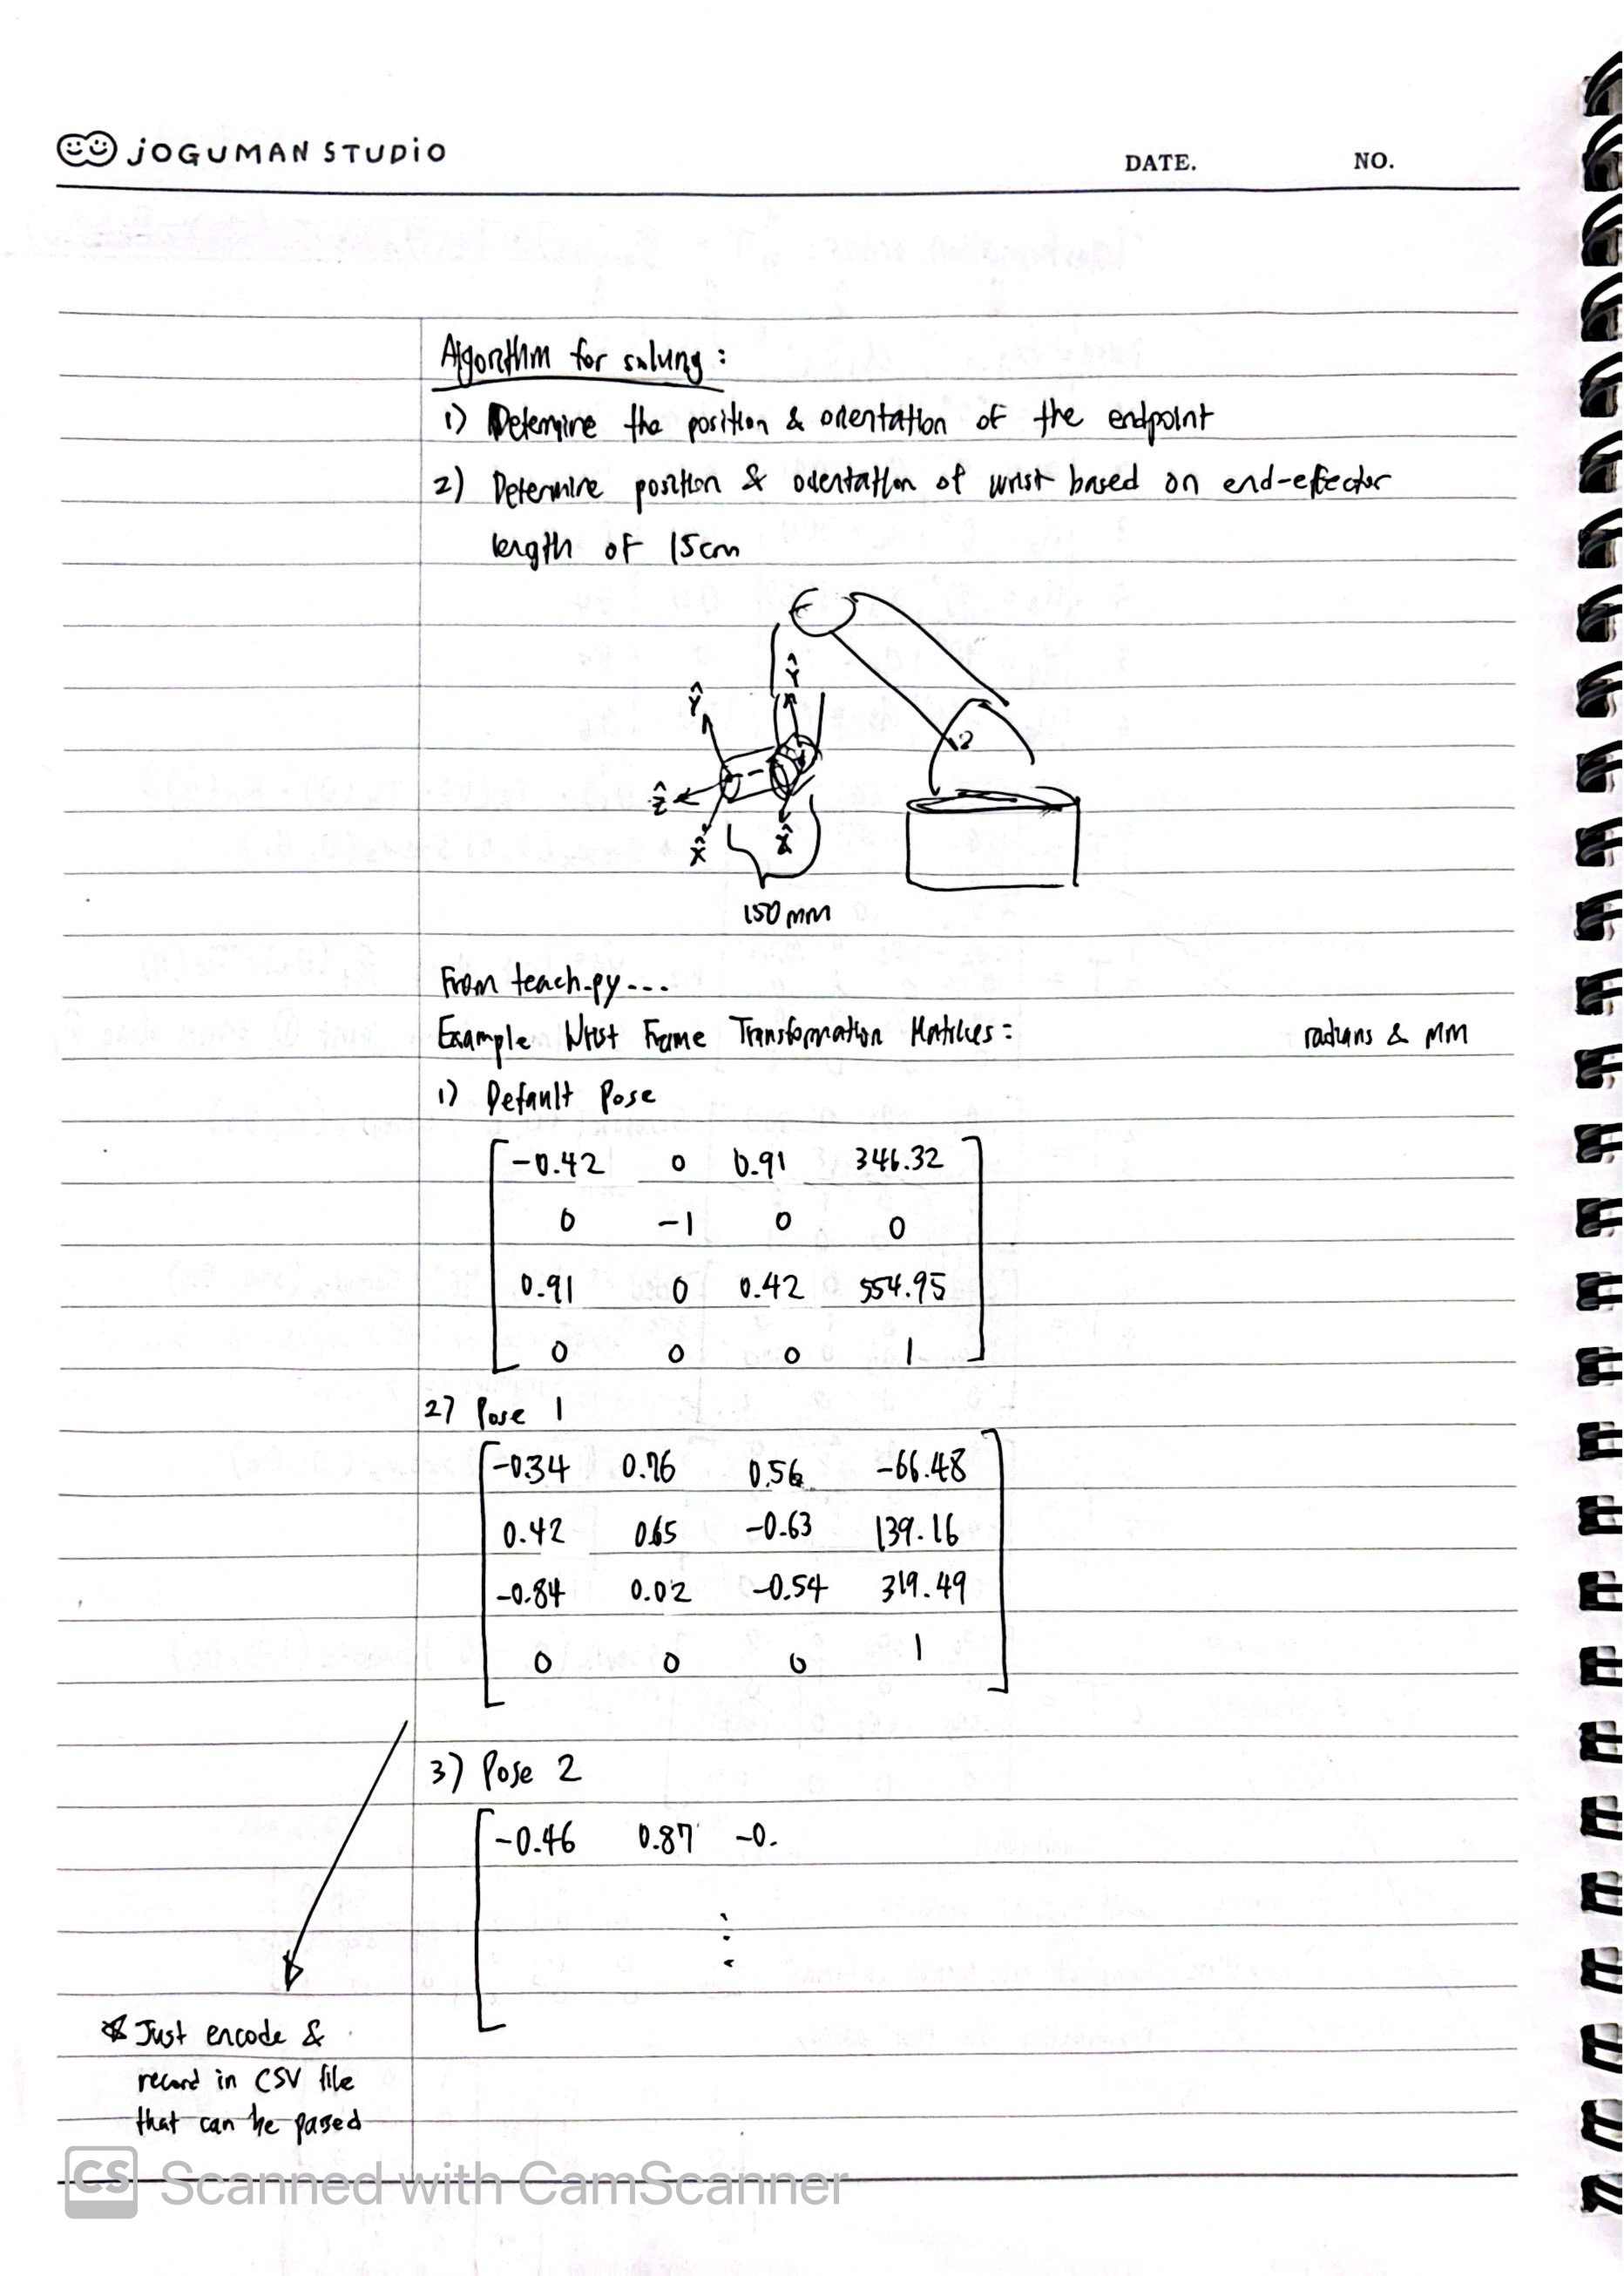 JOGUMAN STUDIO
DATE. NO.
Algorithm for solving :
1) Determine the position & orientation of the endpoint
2) Determine position & orientation of wrist based on end-effector
length of 15cm
Ŷ
Ŷ
Ẑ
X̂
X̂
150 mm
From teach.py...
Example Wrist Frame Transformation Matrices : radians & mm
1) Default Pose
-0.42 0 0.91 346.32
0 -1 0 0
0.91 0 0.42 554.95
0 0 0 1
2) Pose 1
-0.34 0.76 0.56 -66.48
0.42 0.65 -0.63 139.16
-0.84 0.02 -0.54 319.49
0 0 0 1
3) Pose 2
-0.46 0.87 -0.
* Just encode &
record in CSV file
that can be parsed
CS Scanned with CamScanner